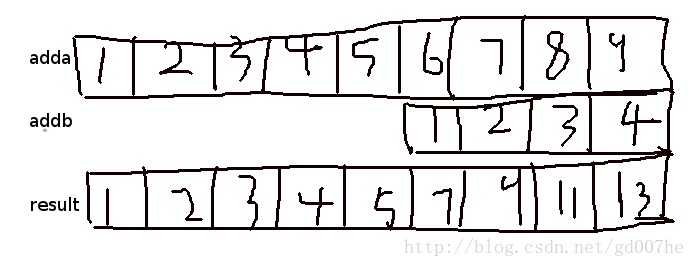 adda 1 2 3 4 5 6 7 8 9
addb 1 2 3 4
result 1 2 3 4 5 7 9 11 13
http://blog.csdn.net/gd007he